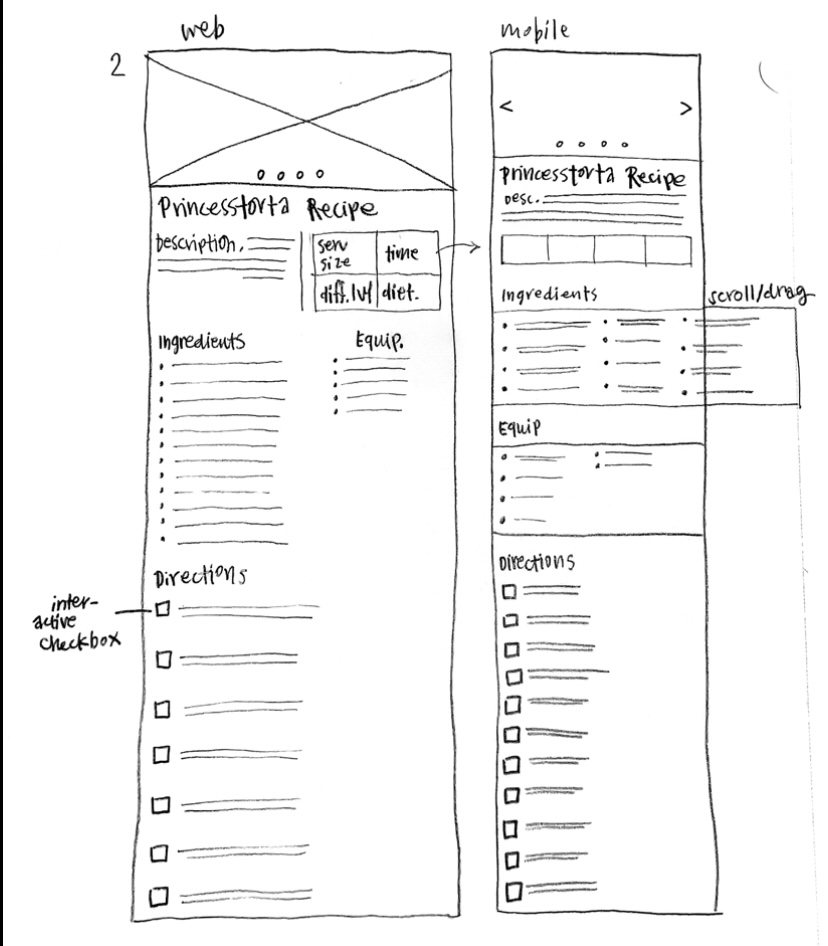 web
2
Princesstorta Recipe
Description.
serv
size
time
diff. lvl
diet.
Ingredients
Equip.
Directions
inter-
active
checkbox
mobile
< >
Princesstorta Recipe
Desc.
Ingredients
scroll/drag
Equip
Directions